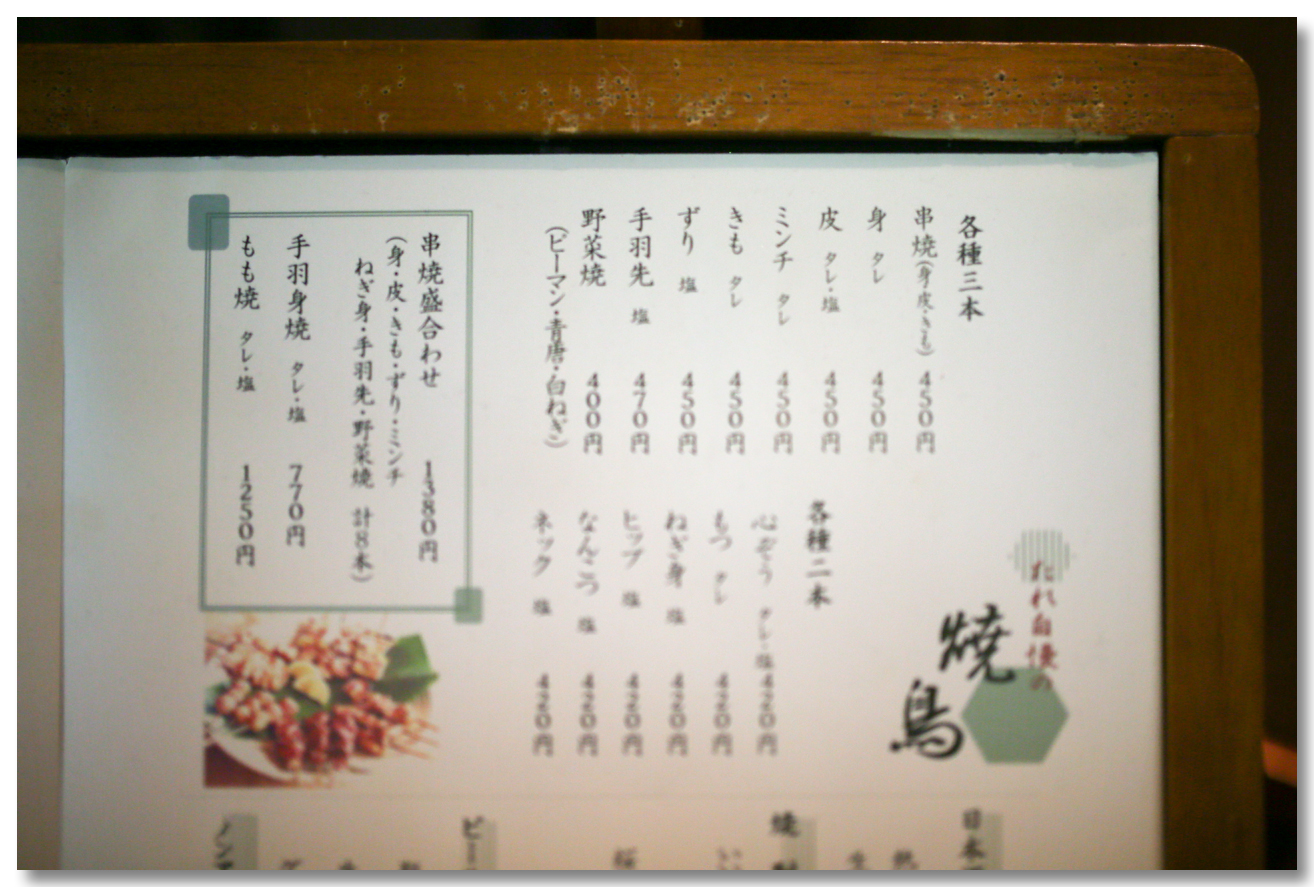 たれ自慢の
焼鳥
各種三本
串焼(身・皮・きも) 450円
身 タレ 450円
皮 タレ・塩 450円
ミンチ タレ 450円
きも タレ 450円
ずり 塩 450円
手羽先 塩 470円
野菜焼 400円
(ピーマン・青唐・白ねぎ)
各種二本
心ぞう タレ・塩 420円
もつ タレ 420円
ねぎ身 塩 420円
ヒップ 塩 420円
なんこつ 塩 420円
ネック 塩 420円
串焼盛合わせ 1380円
(身・皮・きも・ずり・ミンチ
ねぎ身・手羽先・野菜焼 計8本)
手羽身焼 タレ・塩 770円
もも焼 タレ・塩 1250円
日本